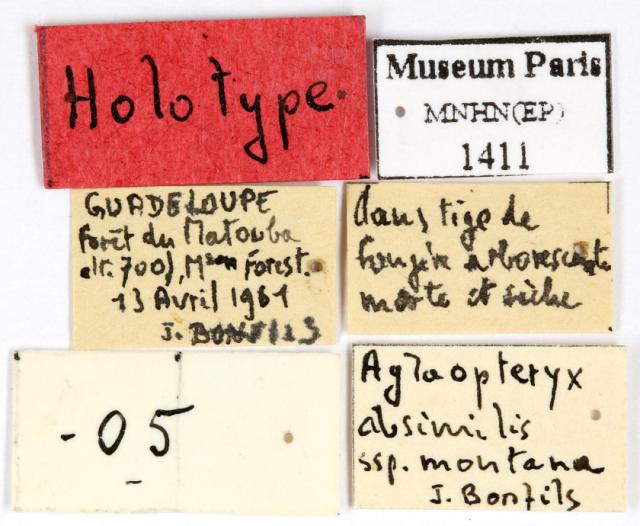 Holotype
Museum Paris
MNHN(EP)
1411
GUADELOUPE
Forêt du Matouba
alt. 700), Mson Forest.
13 Avril 1961
J. BONFILS
dans tige de
fougère arborescente
morte et sèche
-05
Aglaopteryx
absimilis
ssp. montana
J. Bonfils